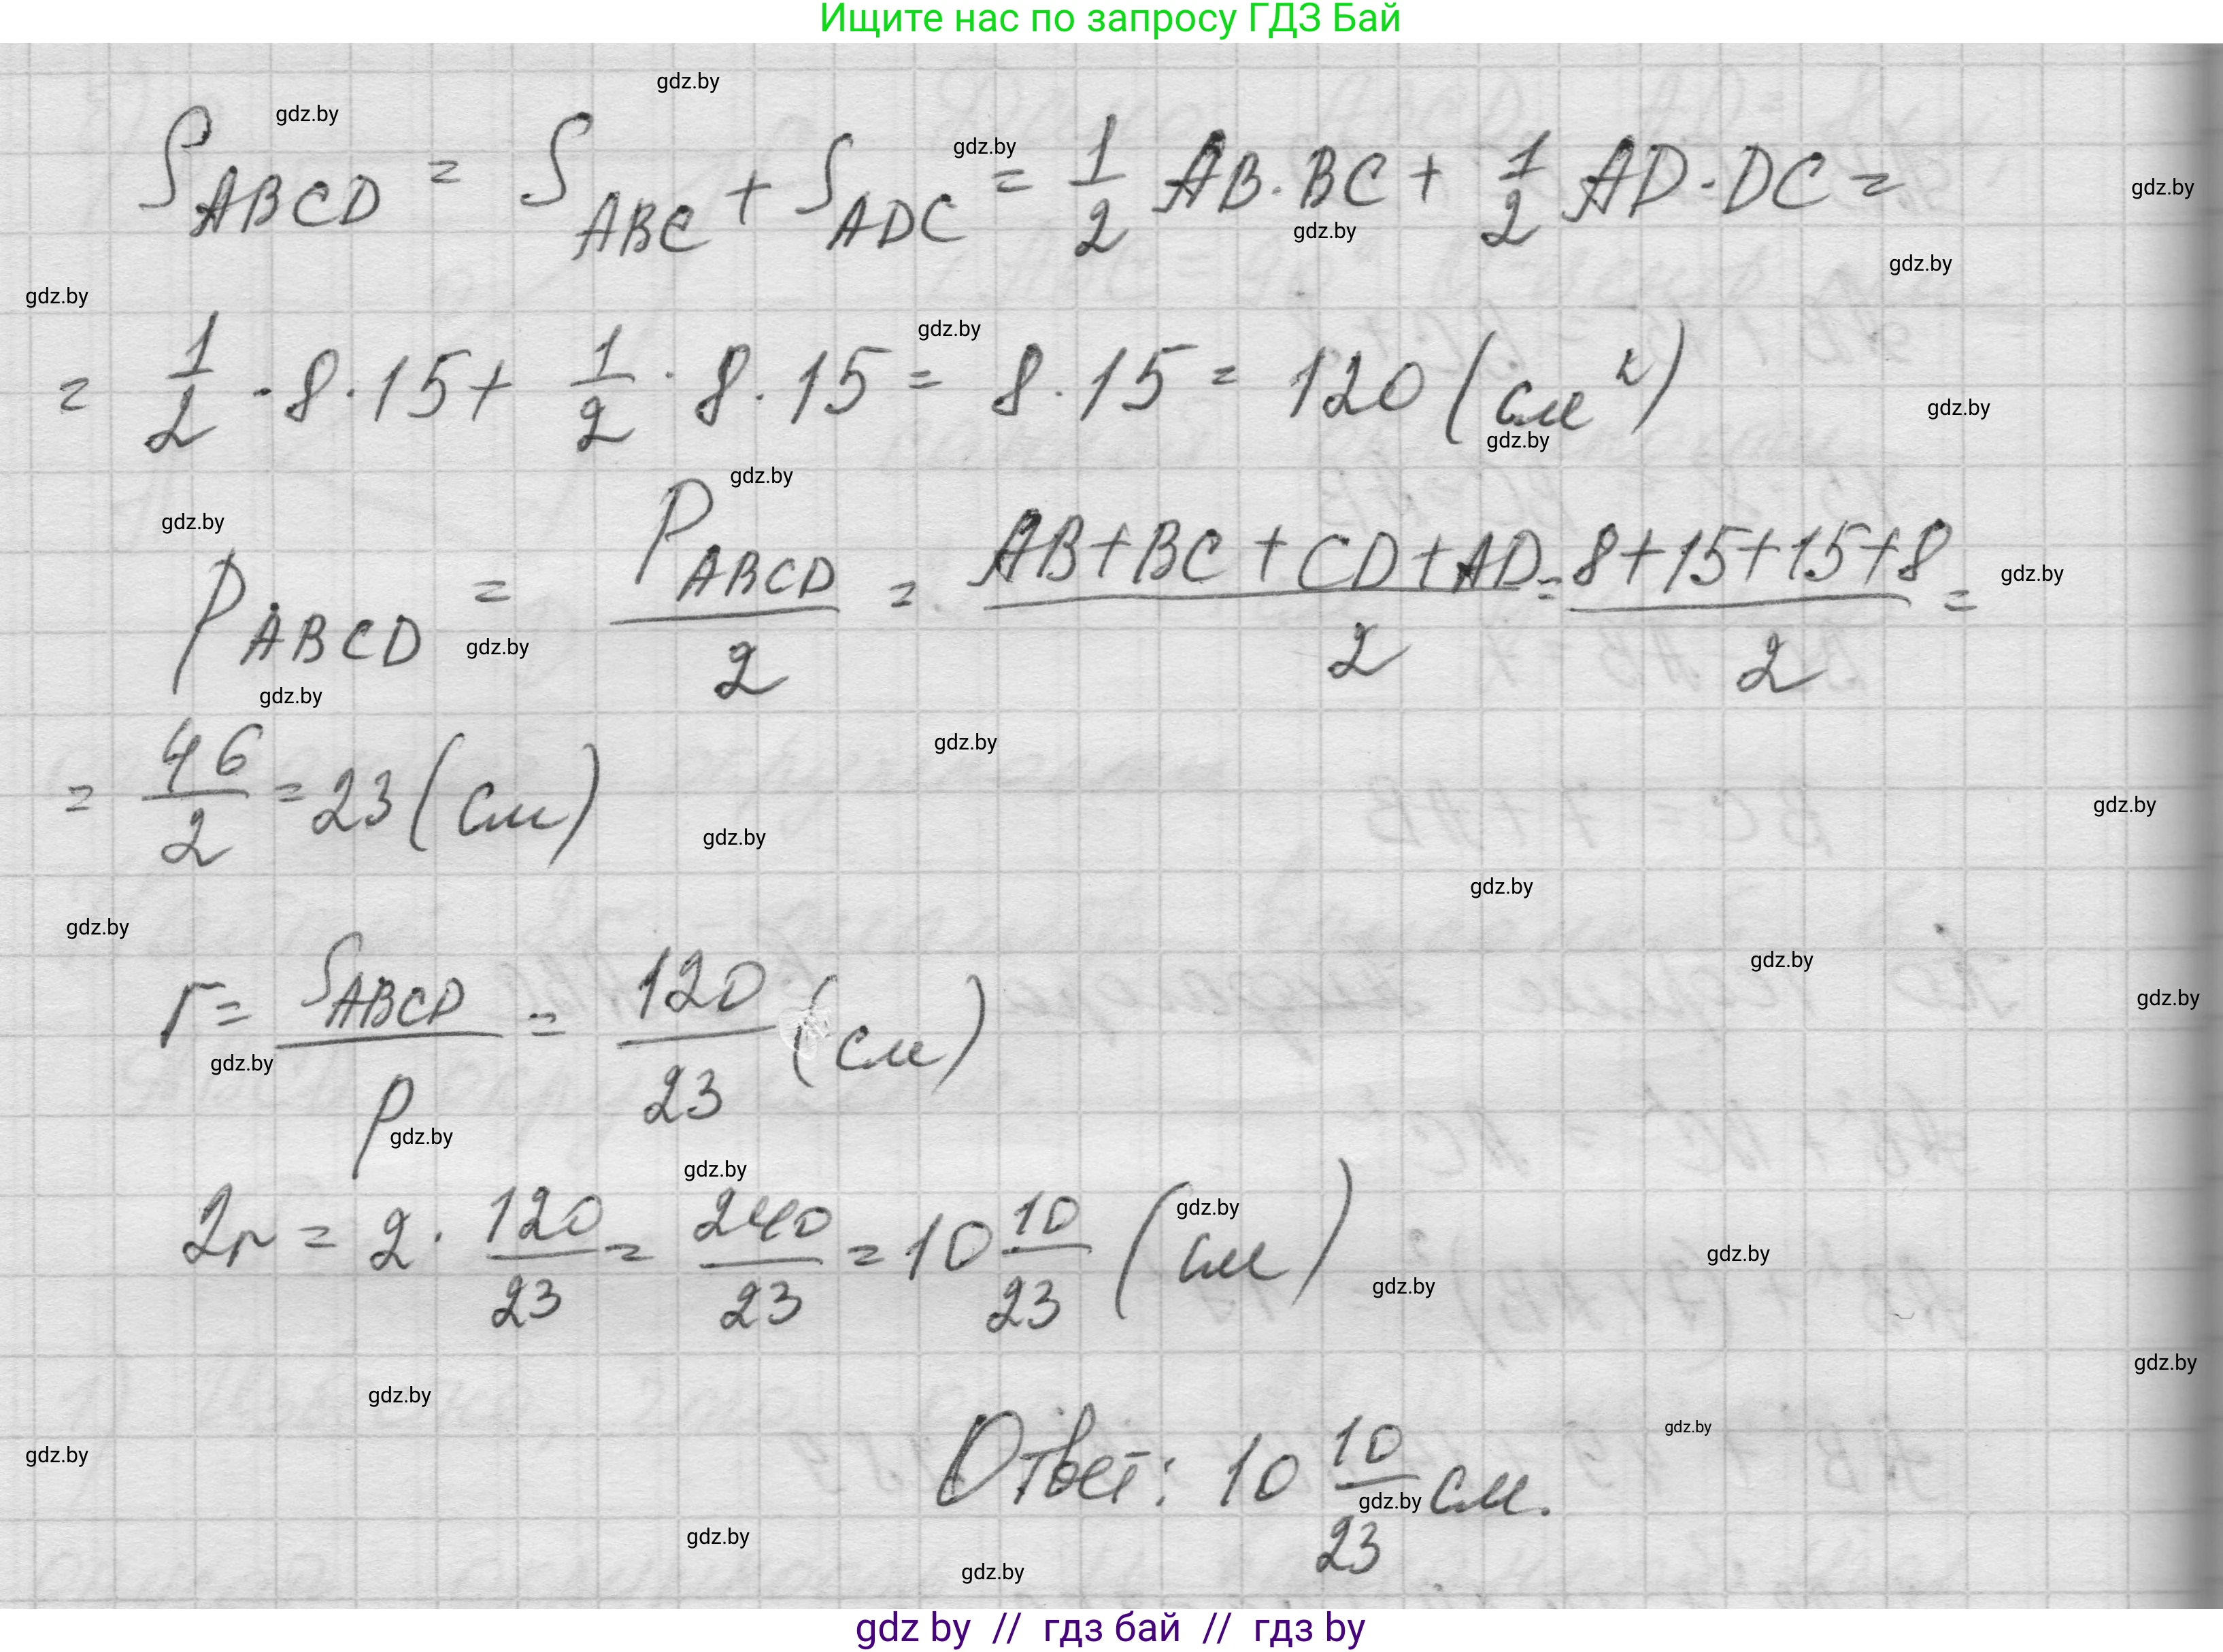 Ищите нас по запросу ГДЗ Бай
S_ABCD = S_ABC + S_ADC = 1/2 AB·BC + 1/2 AD·DC =
= 1/2 · 8 · 15 + 1/2 · 8 · 15 = 8 · 15 = 120 (см²)
p_ABCD = P_ABCD/2 = (AB+BC+CD+AD)/2 = (8+15+15+8)/2 =
= 46/2 = 23 (см)
r = S_ABCD/p = 120/23 (см)
2r = 2 · 120/23 = 240/23 = 10 10/23 (см)
Ответ: 10 10/23 см.
gdz by // гдз бай // гдз by